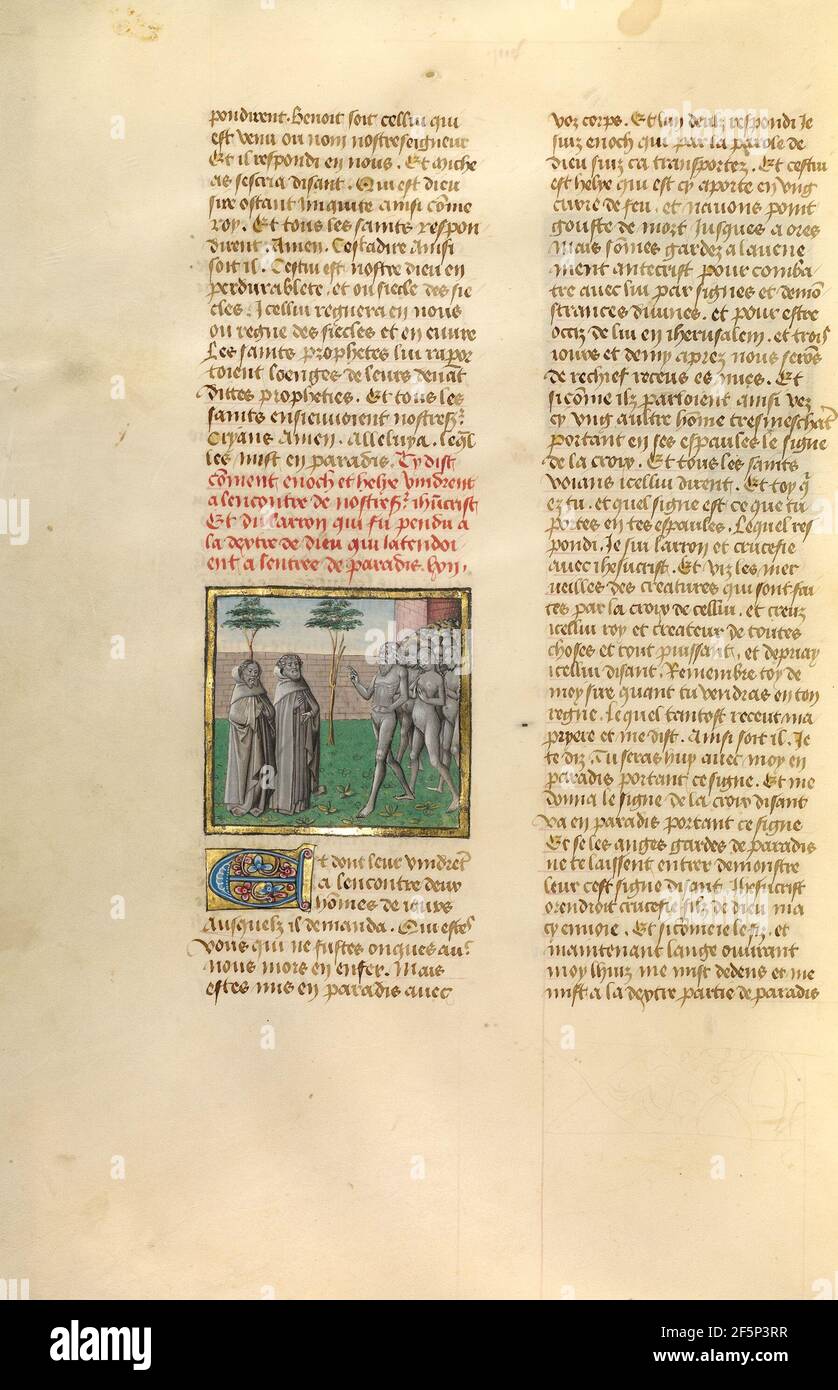 pondirent. Benoit soit cellui qui
est venu ou nom nostreseigneur
Et il respondi en nous. Et miche
as sescria disant. Qui est dieu
sire ostant iniquite ainsi cõme
roy. Et tous les saints respon
dirent. Amen. Cestadire ainsi
soit il. Cestui est nostre dieu en
perdurablete. et ou siecle des sie
cles. Icellui regnera en nous
ou regne des siecles et en euure
Les saints prophetes lui rapor
toient loenges de leurs deuãt
dittes propheties. Et tous les
saints ensieuuoient nostresr.
Cryans Amen. alleluya.
les mist en paradis. Cy dist
cõment enoch et helye vindrent
a lencontre de nostresr. ihũcrist
Et du larron qui fu pendu a
la dextre de dieu qui latendoi
ent a lentree de paradis.
Et dont leur vindrẽt
a lencontre deux
hõmes de iours
Ausquelz il demanda. Qui estes
vous qui ne fustes onques au.
nous mors en enfer. Mais
estes mis en paradis auec
voz corps. Et lun deulz respondi Je
suiz enoch qui par la parole de
dieu suiz ca transportez. Et cestui
est helye qui est cy aporte en vng
curre de feu. et nauons point
gouste de mort iusques a ores
Mais sõmes gardez a laduene
ment antecrist pour comba
tre auec lui par signes et demõ
strances diuines. et pour estre
occiz de lui en iherusalem. et trois
iours et demy aprez nous serõs
de rechief receus es nues. Et
sicõme ilz parloient ainsi vez
cy vng aultre hõme tresmeschãt
portant en ses espaules le signe
de la croix. Et tous les saints
voians icellui dirent. Et toy q̃
ez tu. et quel signe est ce que tu
portes en tes espaules. Lequel res
pondi. Je sui larron et crucefie
auec ihesucrist. Et viz les mer
ueilles des creatures qui sont fai
tes par la croix de cellui. et creuz
icellui roy et createur de toutes
choses et tout puissant. et depriay
icellui disant. Remembre toy de
moy sire quant tu vendras en ton
regne. Lequel tantost receut ma
pryere et me dist. Ainsi soit il. Je
te diz. Tu seras huy auec moy en
paradis portant ce signe. Et me
donna le signe de la croix disant
va en paradis portant ce signe
Et se les anges gardes de paradis
ne te laissent entrer demonstre
leur cest signe disant. Ihesucrist
orendroit crucefie filz de dieu ma
cy enuoie. Et sicõme ie le fiz. et
maintenant lange ouurant
moy lhuiz me mist dedens et me
mist a la dextre partie de paradis
alamy
Image ID: 2F5P3RR
www.alamy.com